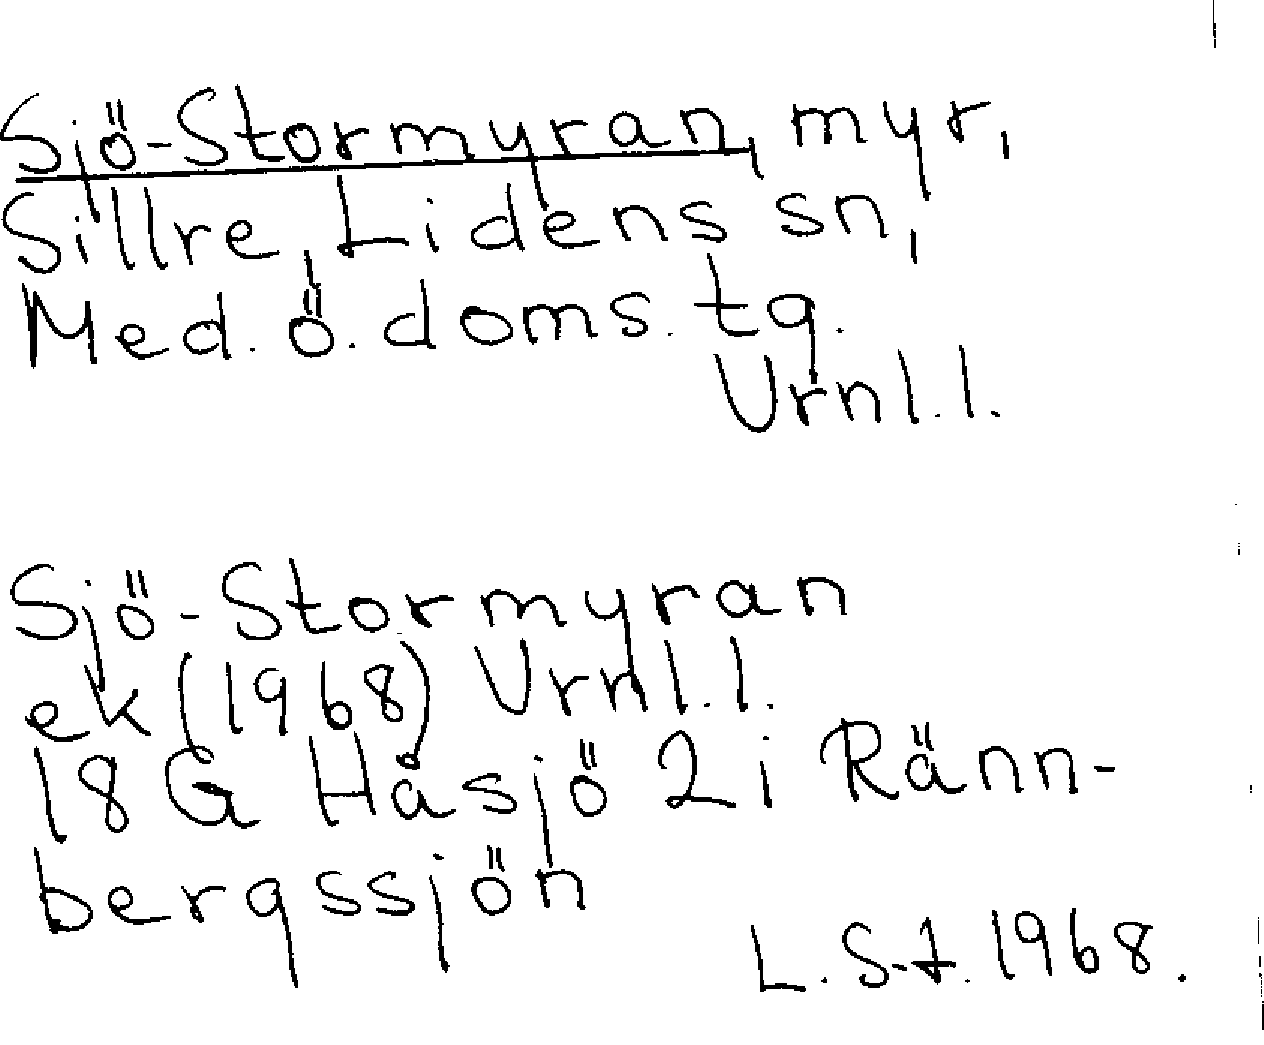 Sjö-Stormyran, myr,
Sillre, Lidens sn,
Med. ö. doms. tg.
Vrnl.l.
Sjö-Stormyran
ek (1968) Vrnl.l.
18G Håsjö 2i Ränn-
bergssjön
L.S-t. 1968.